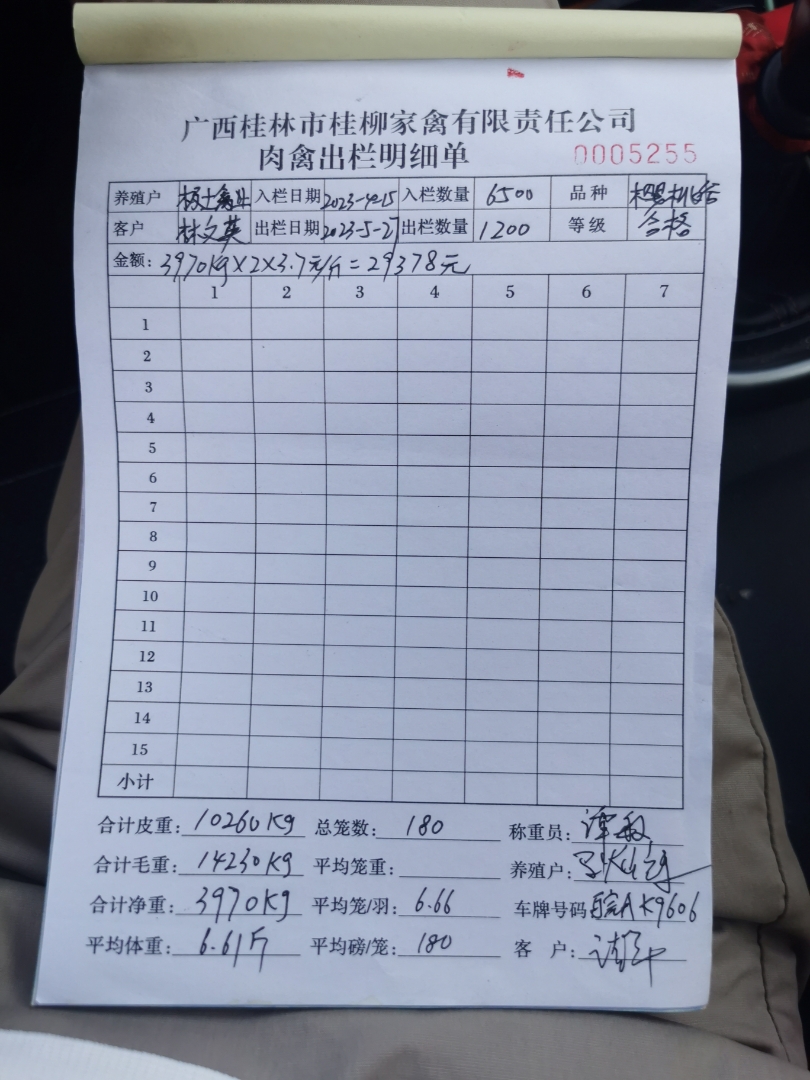 广西桂林市桂柳家禽有限责任公司
肉禽出栏明细单 0005255
养殖户 杨士禽业 入栏日期 2023-4-15 入栏数量 6500 品种
客户 林文英 出栏日期 2023-5-27 出栏数量 1200 等级 合格
金额: 3970kg×2×3.7元/斤=29378元
1 2 3 4 5 6 7
1
2
3
4
5
6
7
8
9
10
11
12
13
14
15
小计
合计皮重: 10260Kg 总笼数: 180 称重员: 谭敏
合计毛重: 14230KG 平均笼重: 养殖户:
合计净重: 3970KG 平均笼/羽: 6.66 车牌号码: 皖AK9606
平均体重: 6.61斤 平均磅/笼: 180 客 户: